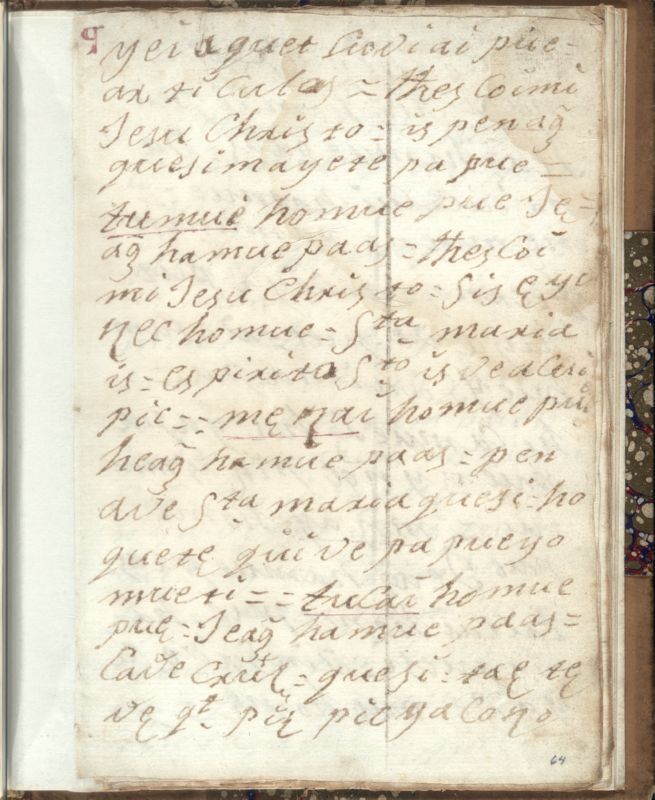 yei quet Cuvi ai pue=
ar ti Culos = thes Coimi
Jesu Christo = is pen ag̃
quesimayete pa pue =
tumuė homue pue Ję=
ag̃ hamue paas = thes Coi
mi Jesu Christo = sis ę yi
ŋec homue = Sta maria
is = espirito Sto is veaCari
pic = = męŋai homue pue
heag̃ hamue paas = pen
ave Sta maria quesi = ho
quetę quive pa pueyo
mueti = = tuCai homue
puę = Jeag̃ hamue paas =
Cave = quesi = taę tę
vę qe piŋ pic yaCoŋo
64